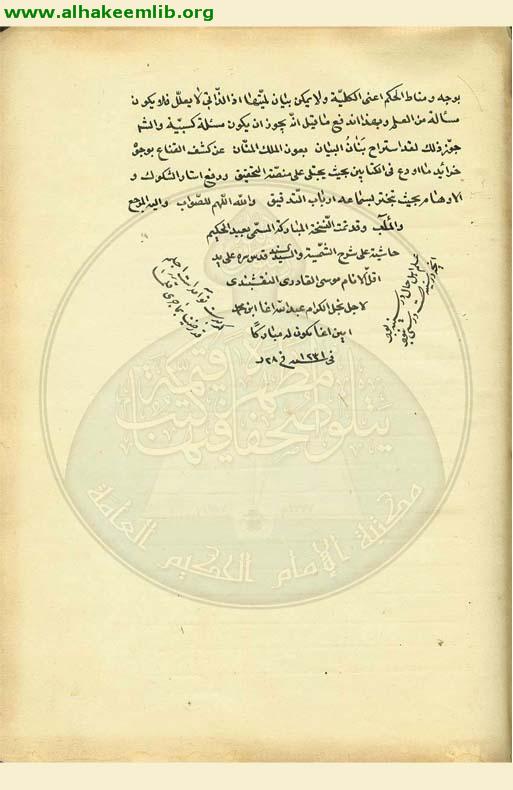 www.alhakeemlib.org
بوجه ومناط الحكم اعنى الكلية ولا يمكن بيان لميتها اذ الذاتى لا يعلل فلا يكون
مسألة من العلم وبهذا اندفع ما قيل انه يجوز ان يكون مسئلة كسبية والشم
جوز ذلك لقد استراح بنان البيان بعون الملك المنان عن كشف القناع بوجوه
خرائد ما اودع فى الكتابين بحيث يجتلى على منصة التحقيق ورفع استار الشكوك و
الاوهام بحيث تهتز بسماعه ارباب التدقيق والله اللهم للصواب واليه المرجع
والمآب وقد تمت النسخة المباركة المسمى بعبد الحكيم
حاشية على شرح الشمسية والسيد قدس سره على يد
اقل الانام موسى القادرى النقشبندى
لاجل نجل الكرام عبد الله اغا ابن محمد
امين اغا يكون له مباركا
فى ١٢٣١ سنه فى ٢٨ ر
يتلو صحفا مطهرة فيها كتب قيمة
مكتبة الإمام الحكيم العامة